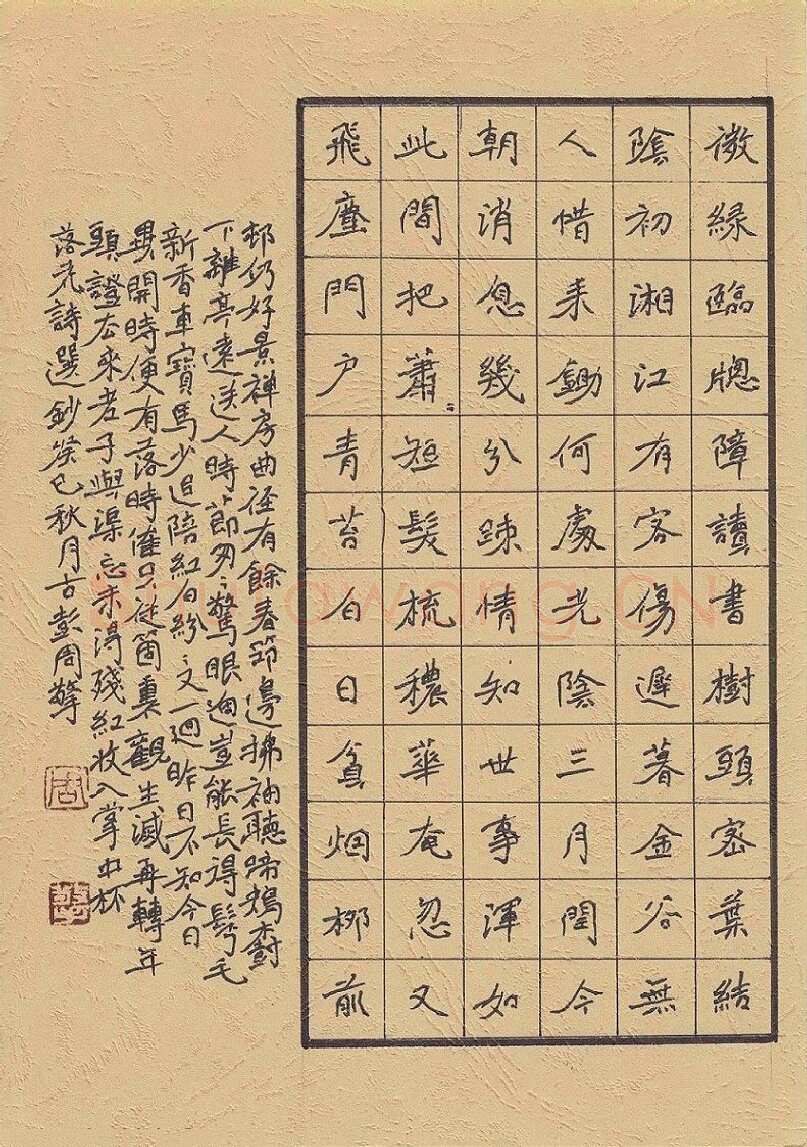 微緑臨牕障讀書樹頭密葉結
陰初湘江有客傷遲暮金谷無
人惜来鋤何處光陰三月閏今
朝消息幾分踈情知世事渾如
此間把蕭〻短髮梳穠華奄忽又
飛塵門户青苔白日貧烟柳前
邨仍好景禅房曲径有餘春筇邊拂袖聽啼鴂樹
下離亭遠送人時節匆〻驚眼過豈能長得鬂毛
新香車寶馬少追陪紅白紛文一迴昨日不知今日
異開時便有落時催只從箇裏觀生滅再轉年
頭證去來老子與渠忘未得殘紅收入掌中杯
落花詩選鈔癸巳秋月古彭周擎
周
擎